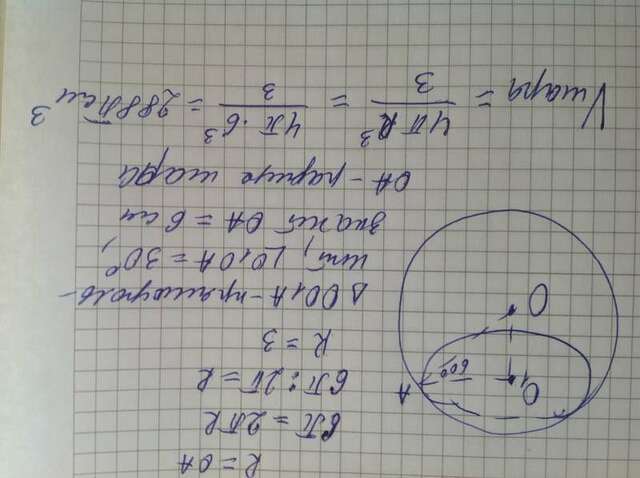 R = OA
6π = 2πR
6π : 2π = R
R = 3
Δ OO₁A - прямоуголь-
ный, ∠O₁OA = 30°,
значит OA = 6 см
OA - радиус шара
Vшара = 4πR³/3 = 4π·6³/3 = 288π см³
A
60°
O₁
O